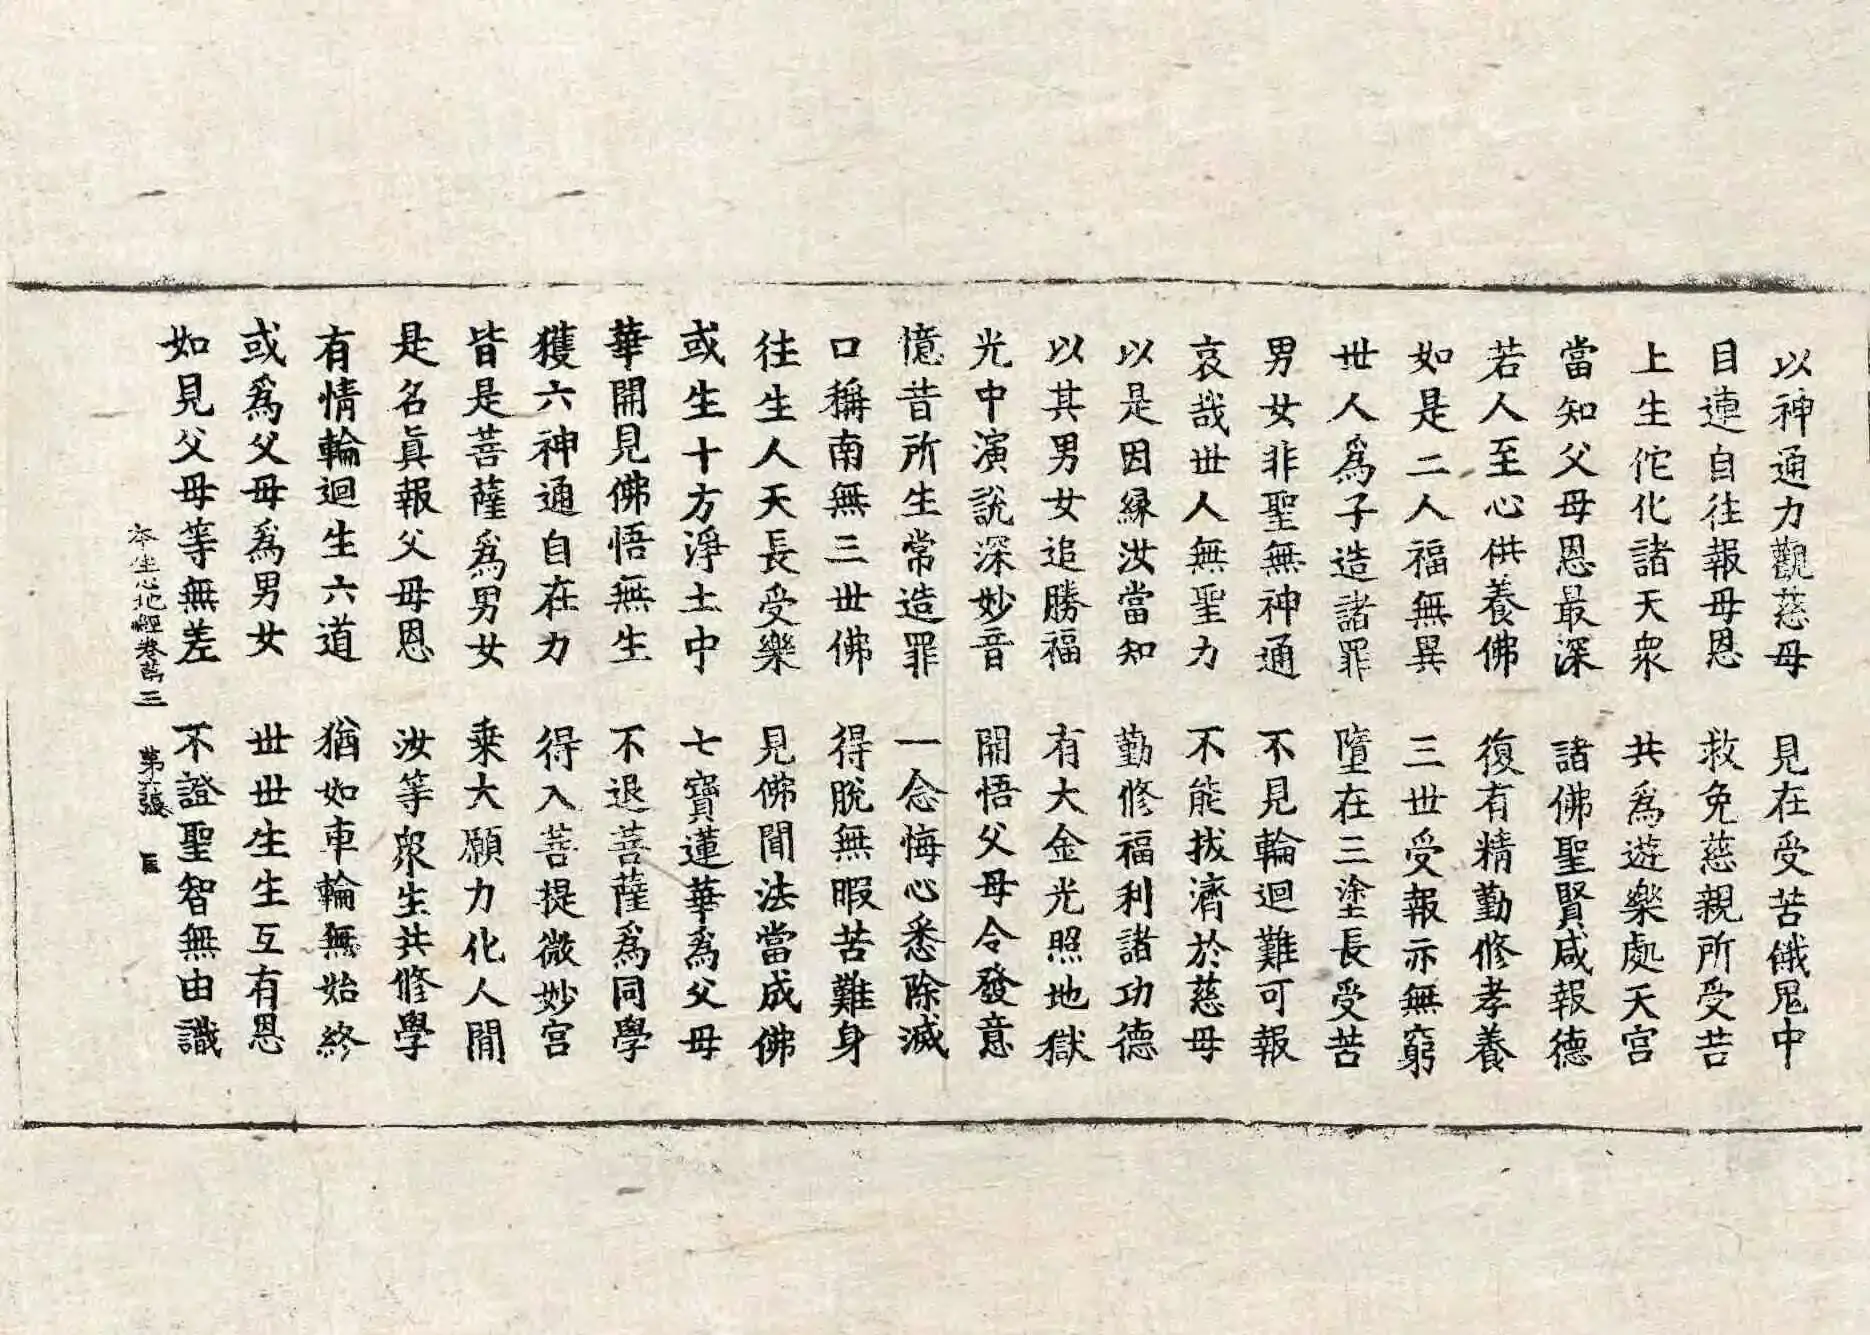 以神通力觀慈母　見在受苦餓鬼中
目連自往報母恩　救免慈親所受苦
上生佗化諸天衆　共爲遊樂處天宮
當知父母恩最深　諸佛聖賢咸報德
若人至心供養佛　復有精勤修孝養
如是二人福無異　三世受報亦無窮
世人爲子造諸罪　墮在三塗長受苦
男女非聖無神通　不見輪迴難可報
哀哉世人無聖力　不能拔濟於慈母
以是因緣汝當知　勤修福利諸功德
以其男女追勝福　有大金光照地獄
光中演說深妙音　開悟父母令發意
憶昔所生常造罪　一念悔心悉除滅
口稱南無三世佛　得脫無暇苦難身
往生人天長受樂　見佛聞法當成佛
或生十方淨土中　七寶蓮華爲父母
華開見佛悟無生　不退菩薩爲同學
獲六神通自在力　得入菩提微妙宮
皆是菩薩爲男女　乘大願力化人間
是名眞報父母恩　汝等衆生共修學
有情輪迴生六道　猶如車輪無始終
或爲父母爲男女　世世生生互有恩
如見父母等無差　不證聖智無由識
本生心地經卷第三　第六張